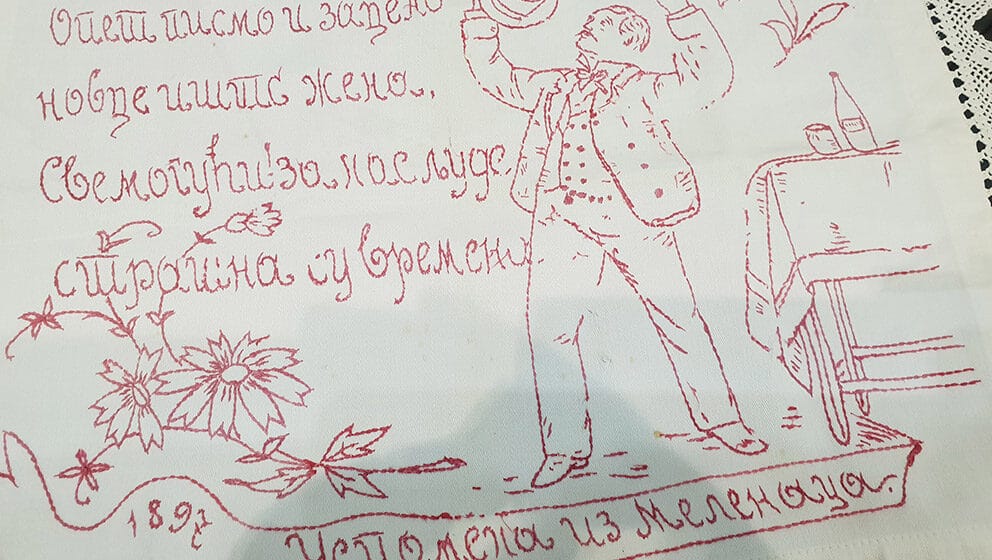 Опет писмо и запево
новце иште жена.
Свемогући! за нас људе
страшна су времена.
1897
Успомена из меленаца.